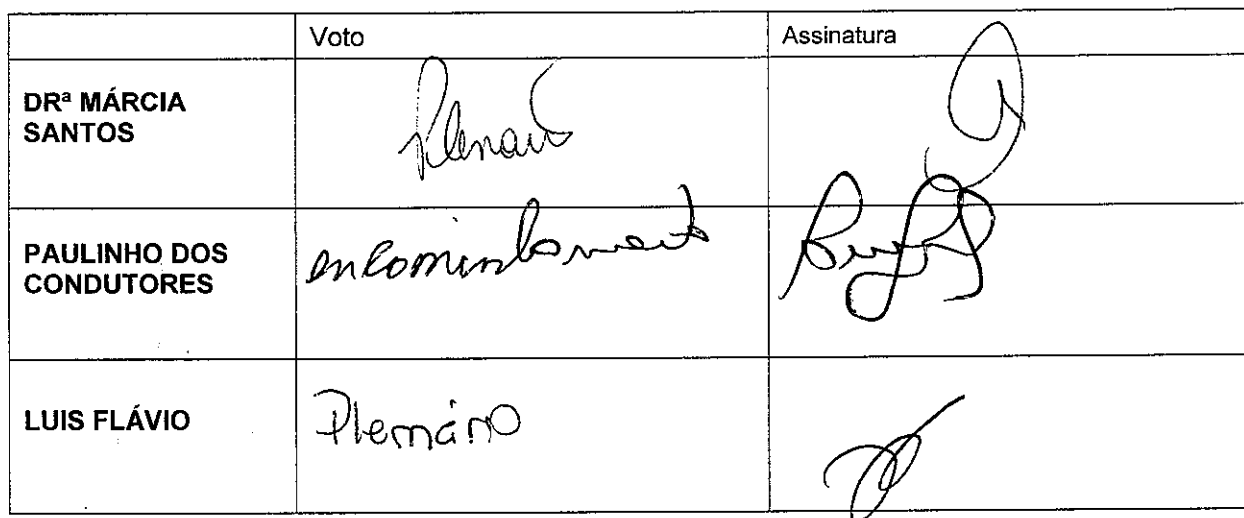 Voto Assinatura
DRª MÁRCIA
SANTOS
Plenário
PAULINHO DOS
CONDUTORES
encaminhamento
LUIS FLÁVIO
Plenário